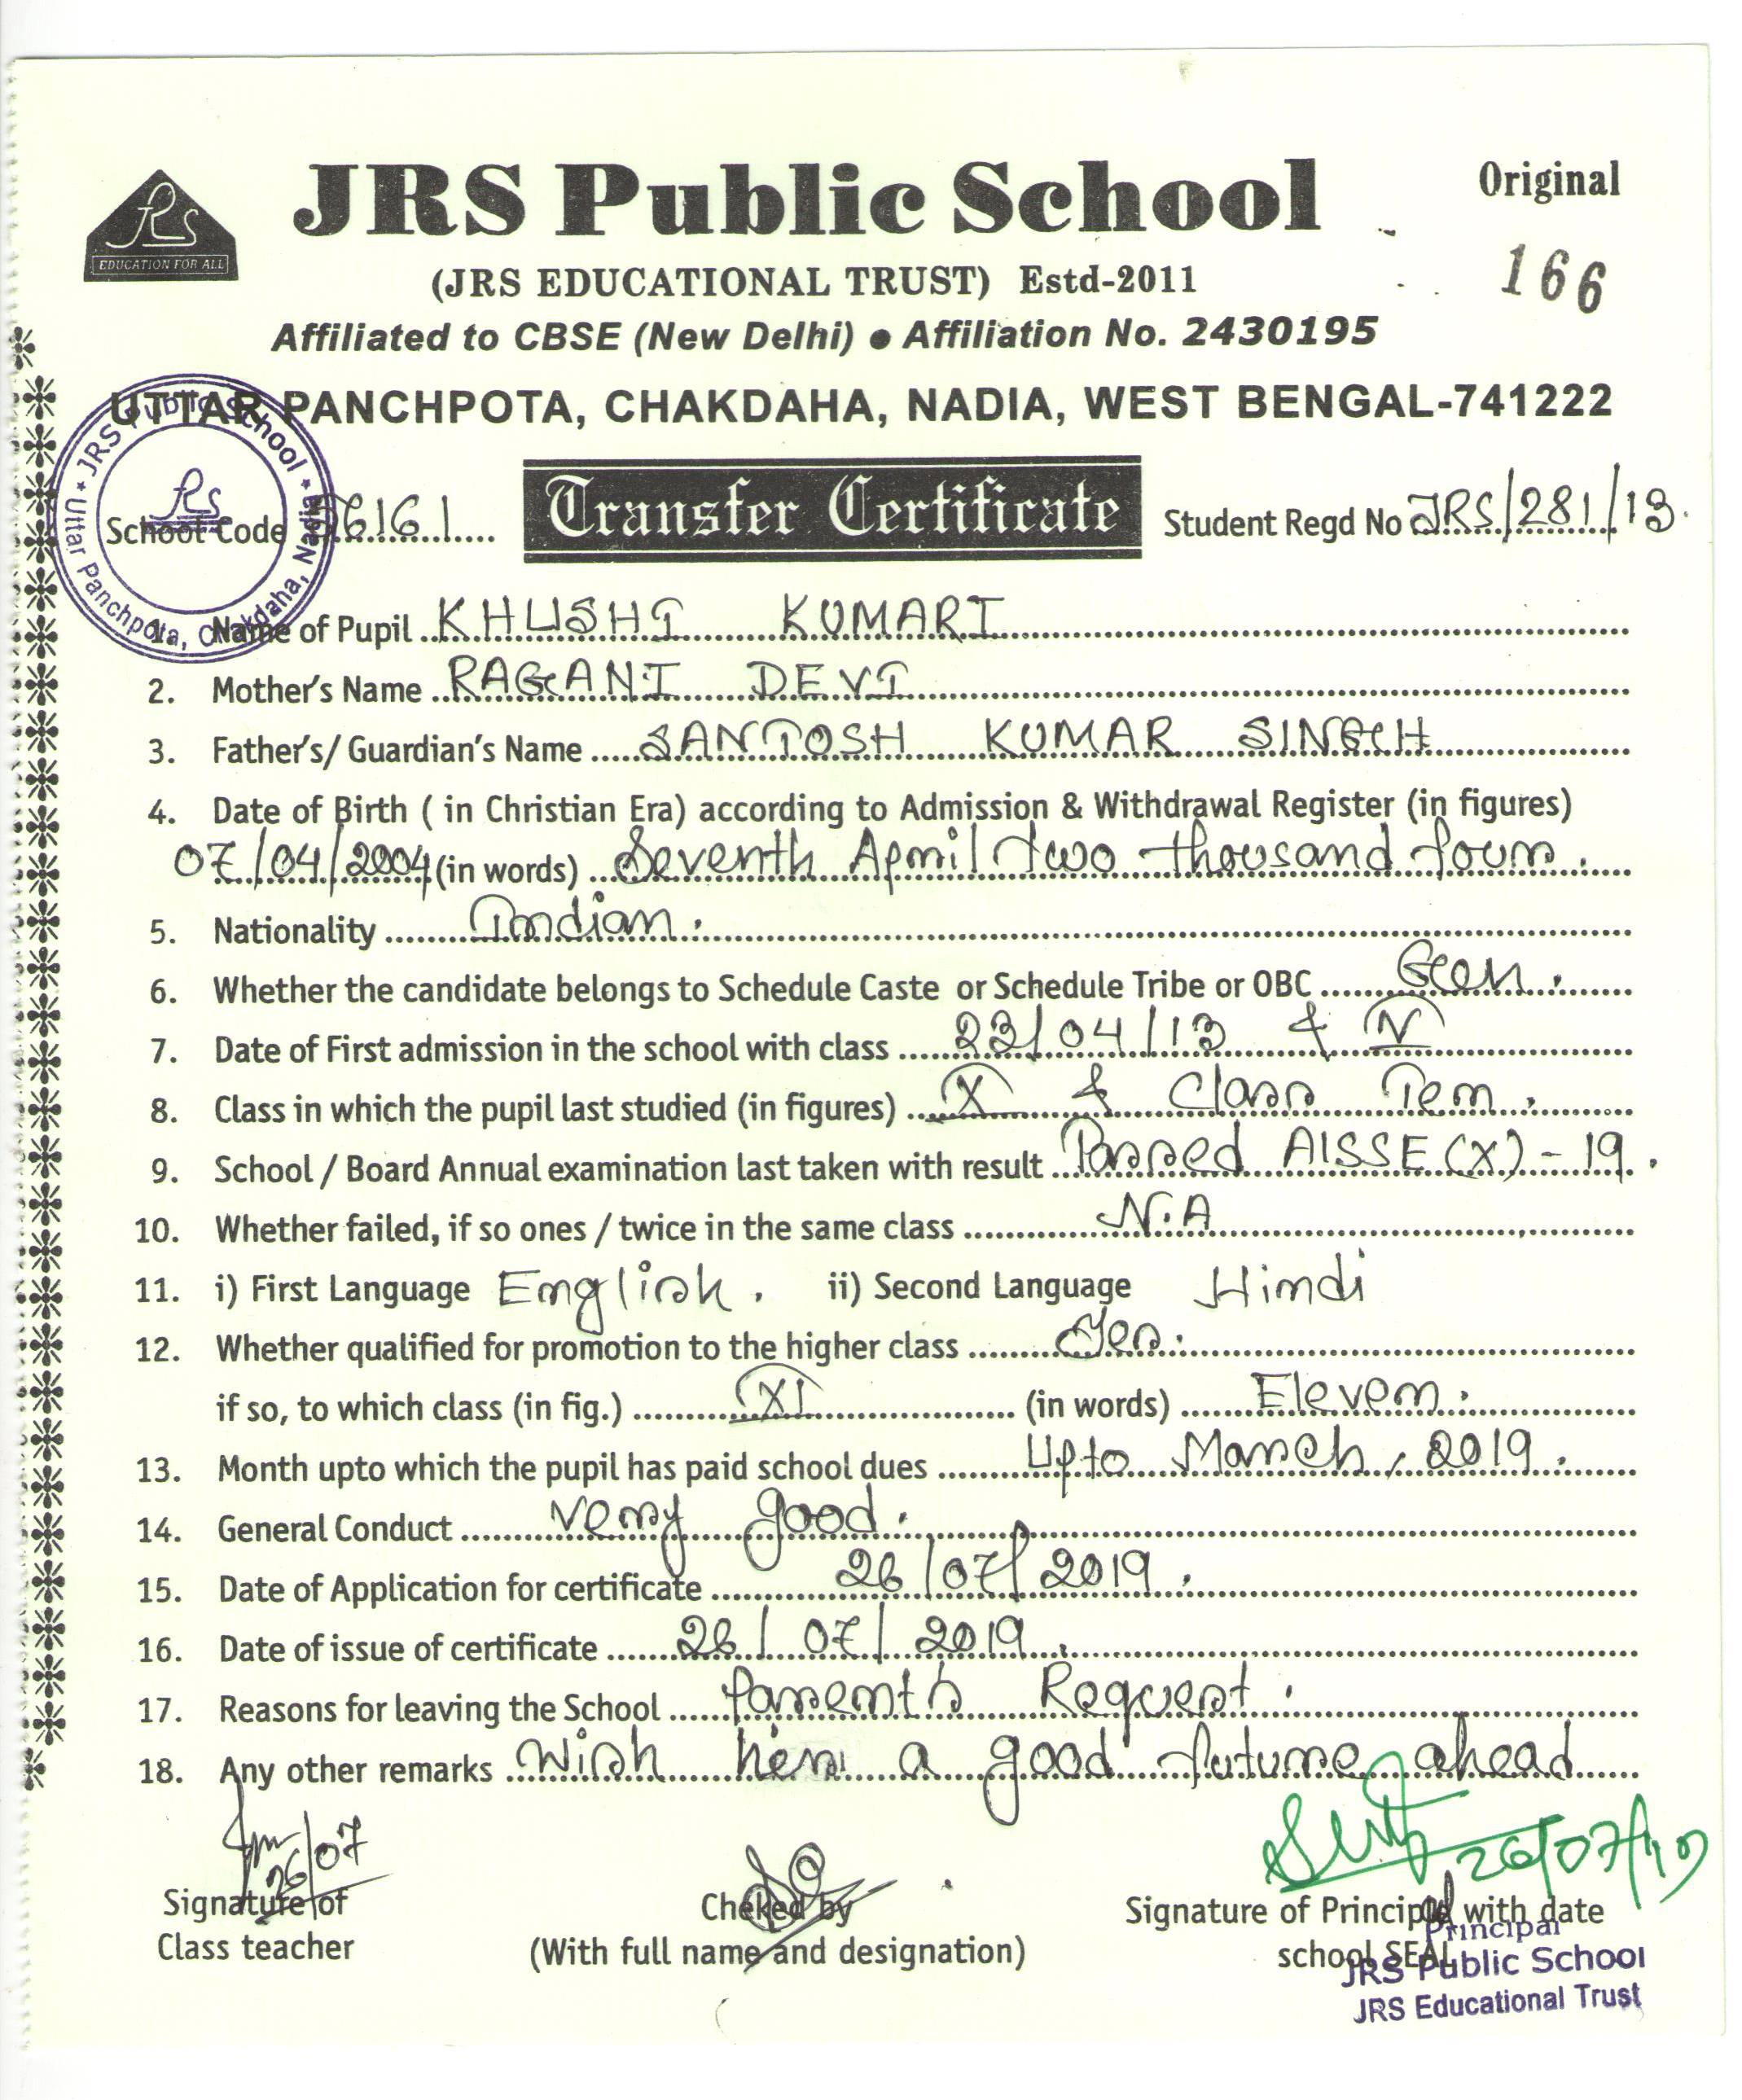 JRS Public School
Original
JRS
EDUCATION FOR ALL
(JRS EDUCATIONAL TRUST) Estd-2011
166
Affiliated to CBSE (New Delhi) ● Affiliation No. 2430195
UTTAR PANCHPOTA, CHAKDAHA, NADIA, WEST BENGAL-741222
* JRS Public School * Uttar Panchpota, Chakdaha, Nadia
JRS
School Code 56161
Transfer Certificate
Student Regd No JRS/281/13.
1. Name of Pupil KHUSHI KUMARI
2. Mother's Name RAGANI DEVI
3. Father's/ Guardian's Name SANTOSH KUMAR SINGH
4. Date of Birth ( in Christian Era) according to Admission & Withdrawal Register (in figures)
07/04/2004 (in words) Seventh April two thousand four.
5. Nationality Indian.
6. Whether the candidate belongs to Schedule Caste or Schedule Tribe or OBC Gen.
7. Date of First admission in the school with class 23/04/13 & V
8. Class in which the pupil last studied (in figures) X & Class Ten.
9. School / Board Annual examination last taken with result Passed AISSE (X) - 19.
10. Whether failed, if so ones / twice in the same class N.A
11. i) First Language English. ii) Second Language Hindi
12. Whether qualified for promotion to the higher class Yes.
if so, to which class (in fig.) XI (in words) Eleven.
13. Month upto which the pupil has paid school dues Upto March, 2019.
14. General Conduct very good.
15. Date of Application for certificate 26/07/2019.
16. Date of issue of certificate 26/07/2019.
17. Reasons for leaving the School Parents Request.
18. Any other remarks Wish her a good future ahead
26/07
26/07/19
Signature of
Class teacher
Cheked by
(With full name and designation)
Signature of Principal with date
school SEAL
Principal
JRS Public School
JRS Educational Trust